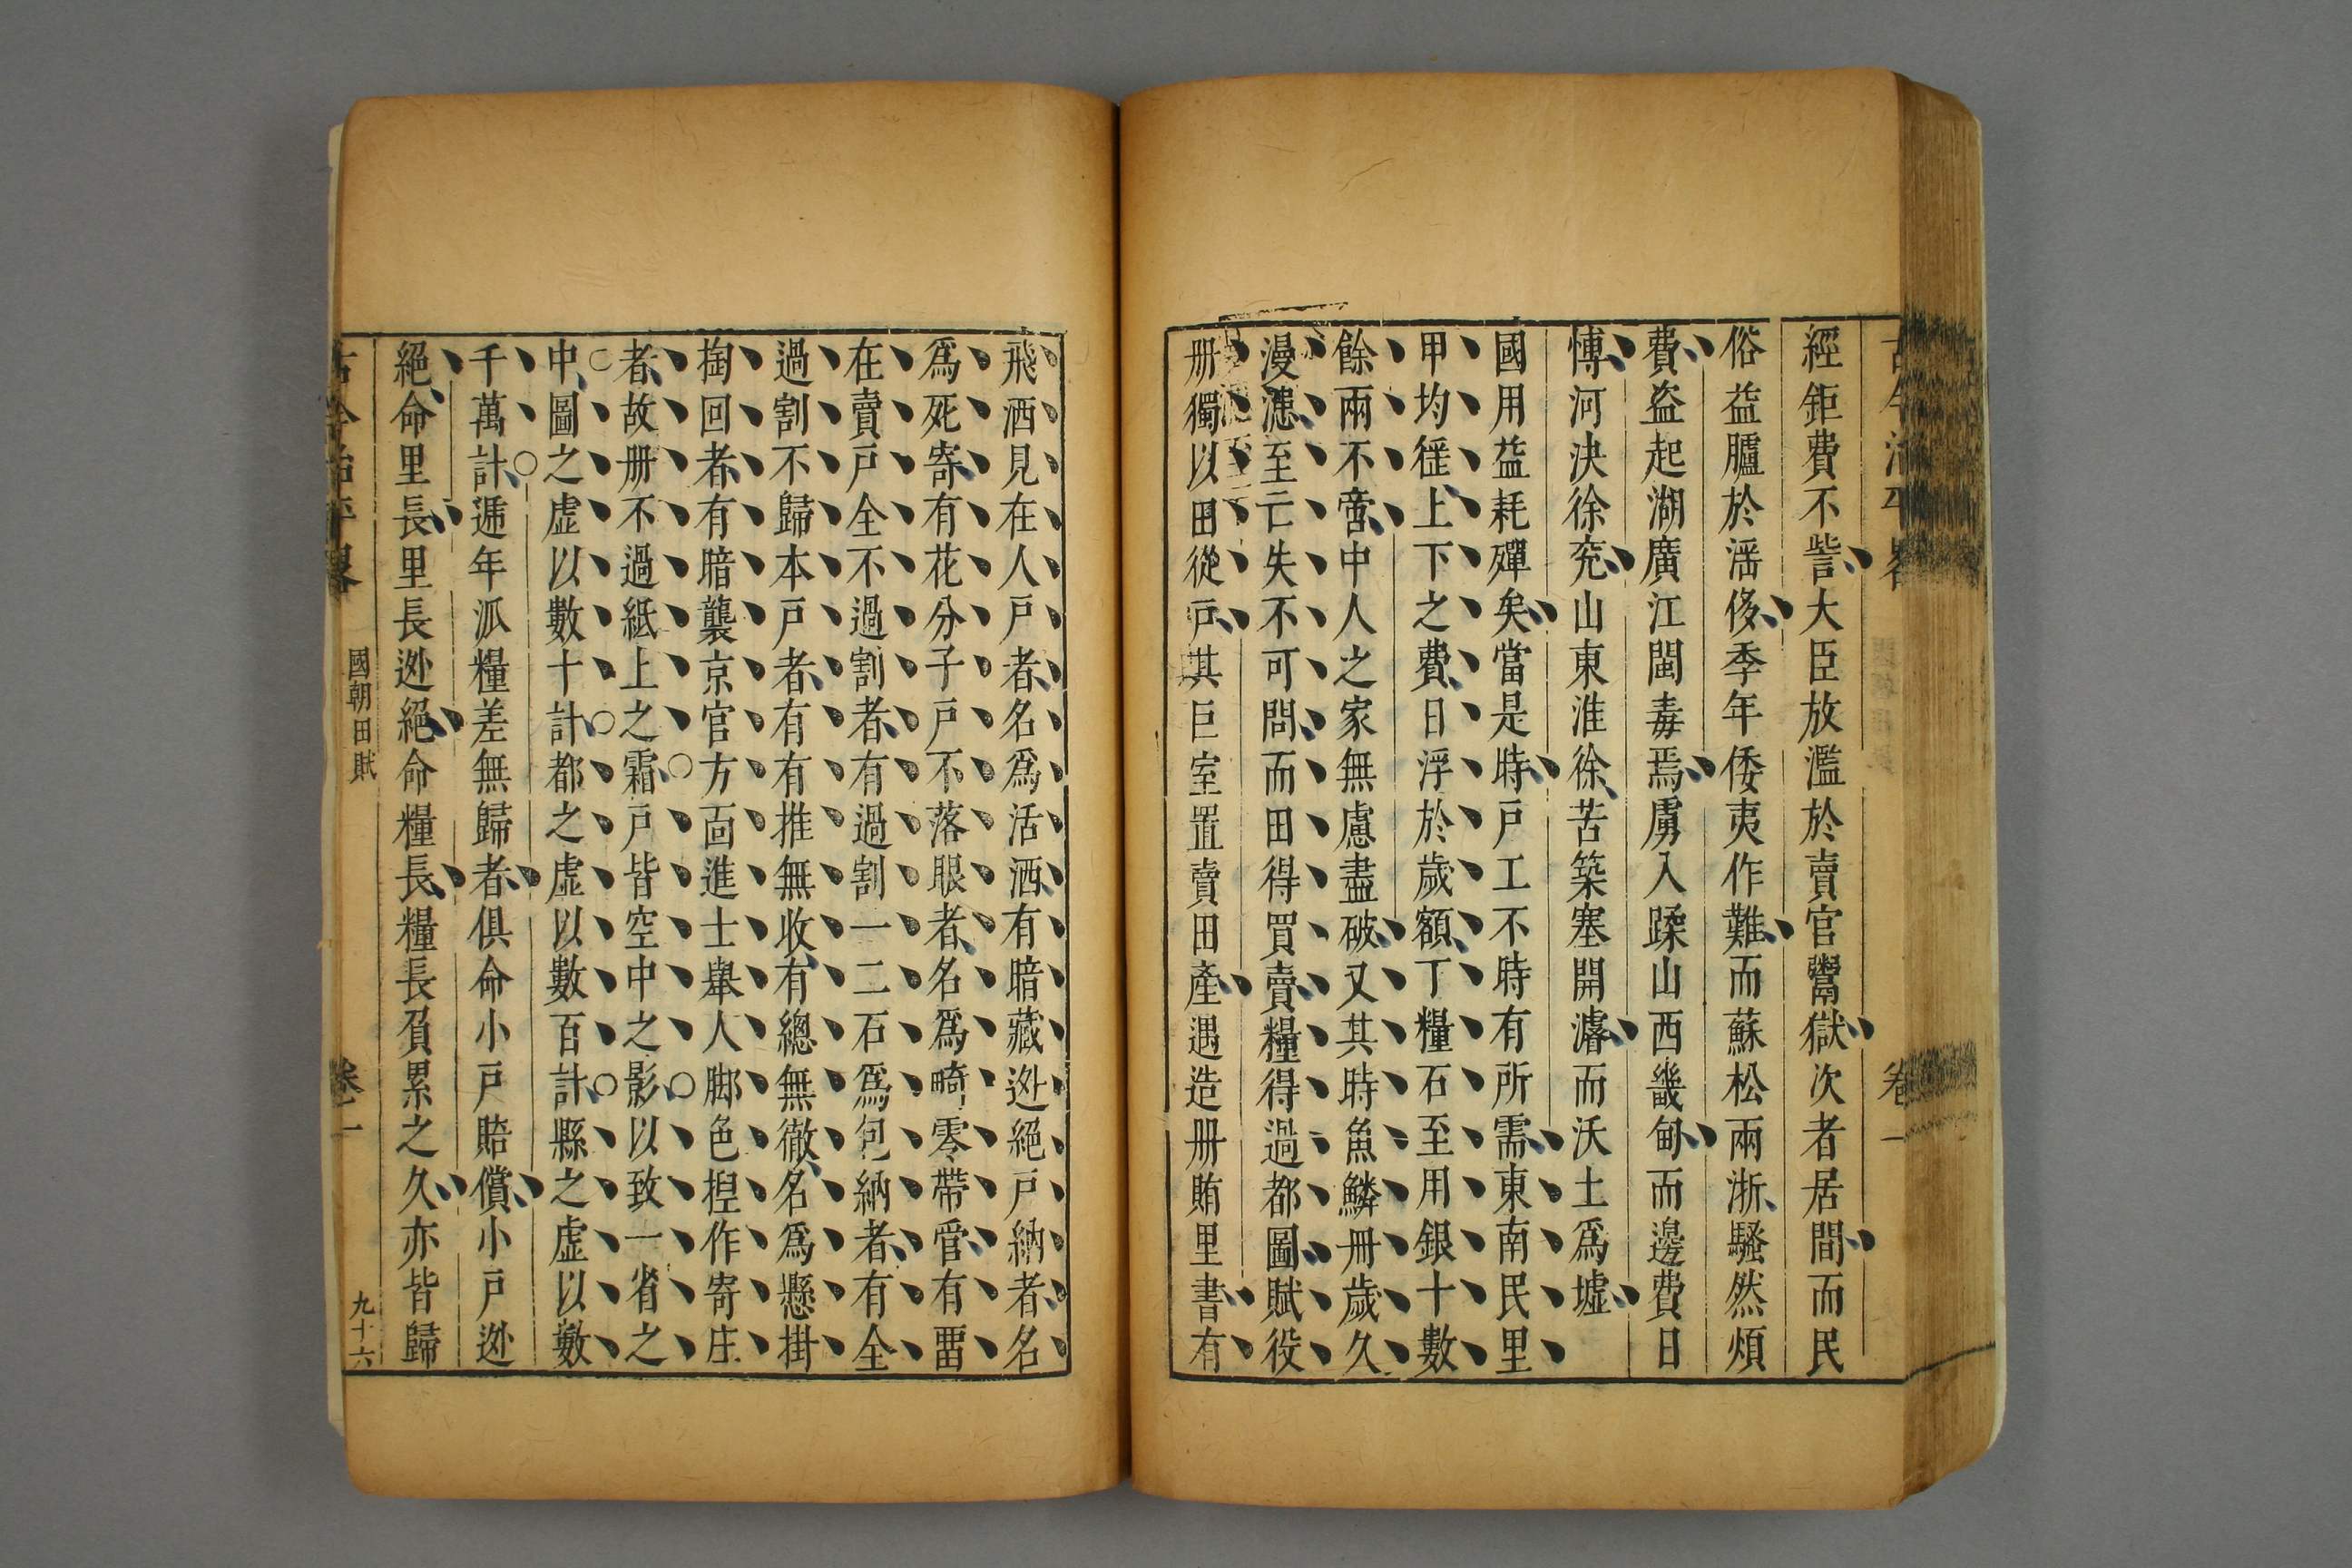 經鉅費不訾大臣放濫於賣官鬻獄次者居間而民
俗益臚於滛侈季年倭夷作難而蘇松兩浙騷然煩
費盗起湖廣江閩毒焉虜入蹂山西畿甸而邊費日
愽河決徐兖山東淮徐苦築塞開濬而沃土爲墟
國用益耗殫矣當是時戸戸工不時有所需東南民里
甲均徭上下之費日浮於歲額丁糧石至用銀十數
餘兩不啻中人之家無慮盡破又其時魚鱗冊歲久
漫漶至亡失不可問而田得買賣糧得過都圖賦役
册獨以田從戸其巨室置賣田產遇造册賄里書有
飛洒見在人戸者名爲活洒有暗藏迯絕戸納者名
爲死寄有花分子戸不落眼者名爲畸零帶管有畱
在賣戸全不過割者有過割一二石爲包納者有全
過割不歸本戸者有有推無收有總無徹名爲懸掛
掏回者有暗襲京官方面進士舉人脚色捏作寄庄
者故册不過紙上之霜戸皆空中之影以致一省之
中圖之虚以數十計都之虚以數百計縣之虚以數
千萬計遞年派糧差無歸者俱命小戸賠償小戸迯
絕命里長里長迯絕命糧長糧長負累之久亦皆歸
古今治平畧 國朝田賦 卷一 九十六